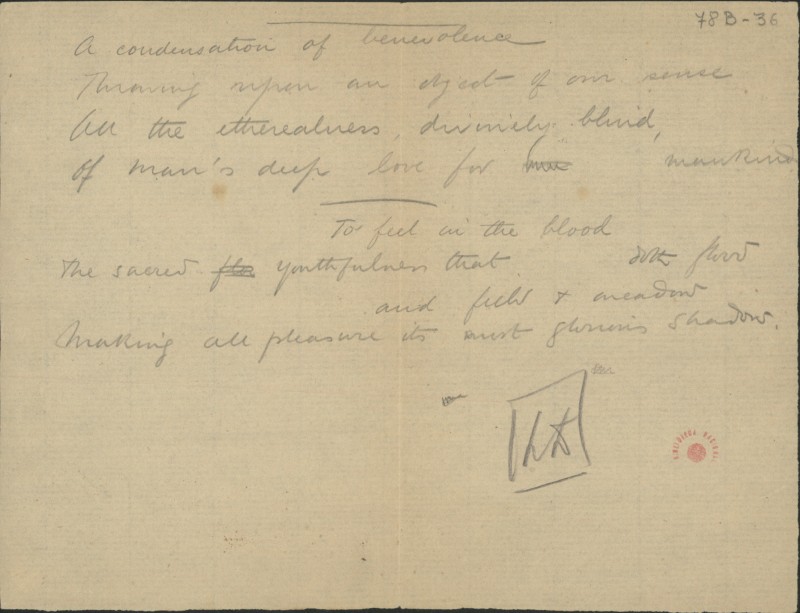 78B-36
A condensation of benevolence
Throwing upon an object of our sense
All the etherealness, divinely blind,
Of man's deep love for mankind
To feel in the blood
The sacred youthfulness that doth flood
and field & meadow
Making all pleasure its most glorious shadow.
BIBLIOTECA NACIONAL